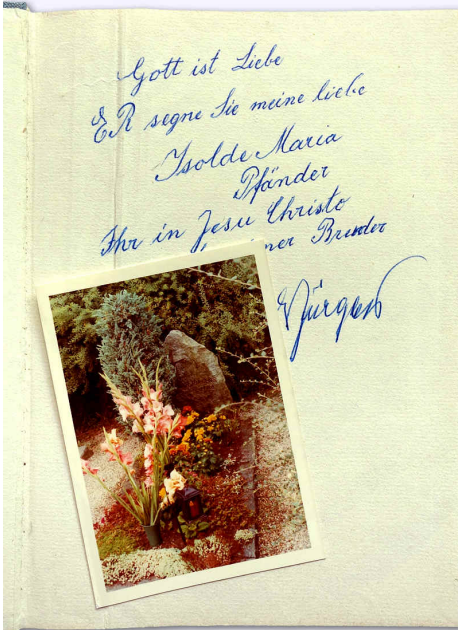 Gott ist Liebe
ER segne Sie meine liebe
Isolde Maria
Pfänder
Ihr in Jesu Christo
Bruder
Jürgen